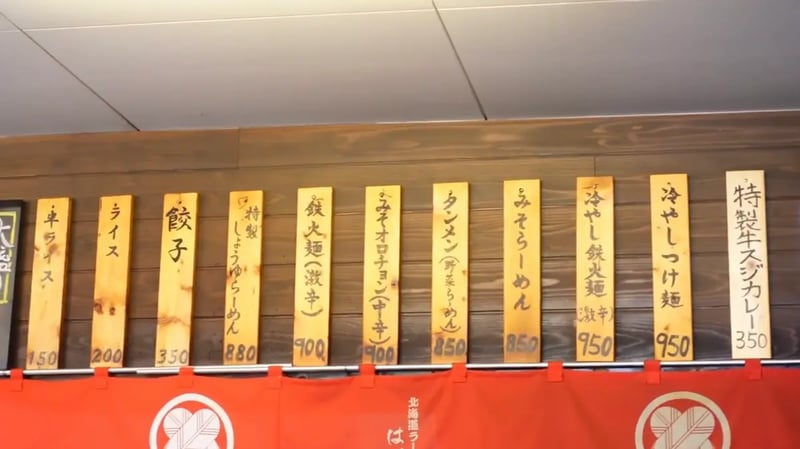 特製牛スジカレー 350
冷やしつけ麺 950
冷やし鉄火麺(激辛) 950
みそらーめん 850
タンメン(野菜らーめん) 850
みそオロチョン(中辛) 900
鉄火麺(激辛) 900
特製しょうゆらーめん 880
餃子 350
ライス 200
半ライス 150
北海道ラー
は